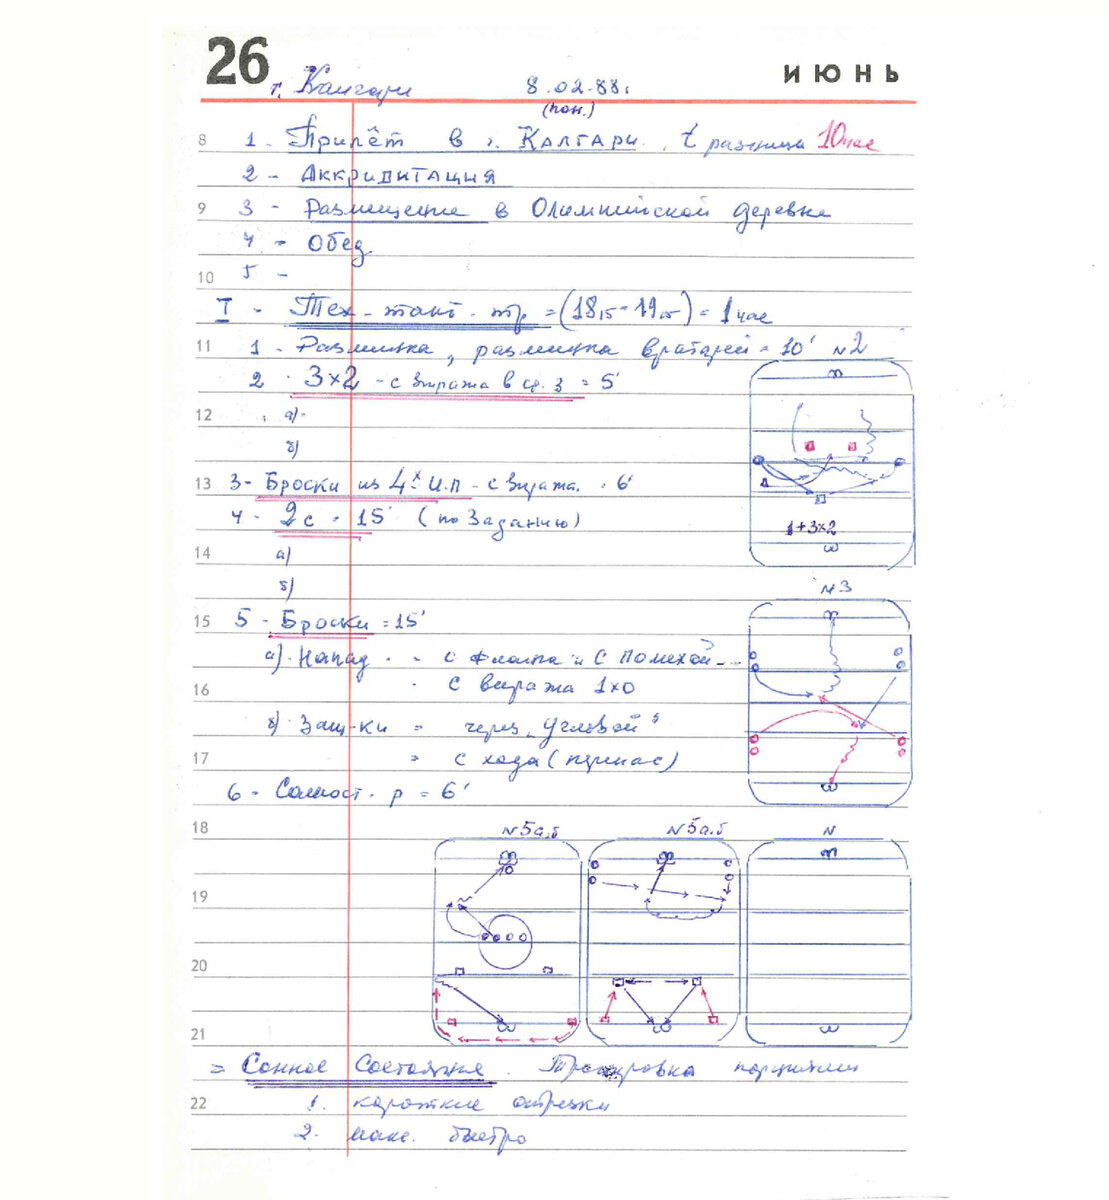 26 ИЮНЬ
г. Калгари 8.02.88г.
(пон.)
8 1. Прилёт в г. Калгари. t разница 10 час
2 - Аккридитация
9 3 - Размещение в Олимпийской деревне
4 - Обед
10 5 -
I - Тех-такт. тр. = (18,15 - 19,15) = 1 час
11 1 - Разминка, разминка вратарей = 10' N2
2 - 3x2 - с виража в ср. з = 5'
12 а)
б)
13 3 - Броски из 4х И.П - с виража = 6'
4 - 2с = 15' (по заданию)
1+3x2
14 а)
б)
N3
15 5 - Броски = 15'
а). Напад. - с фланга и с помехой
16 - с виража 1x0
б). Защ-ки = через "угловой"
17 = с хода (перепас)
6 - Самост. р = 6'
18 N5а,б N5а.б N
19
20
21
= Сонное состояние. Тренировка порциями
22 1. короткие отрезки
2. макс. быстро